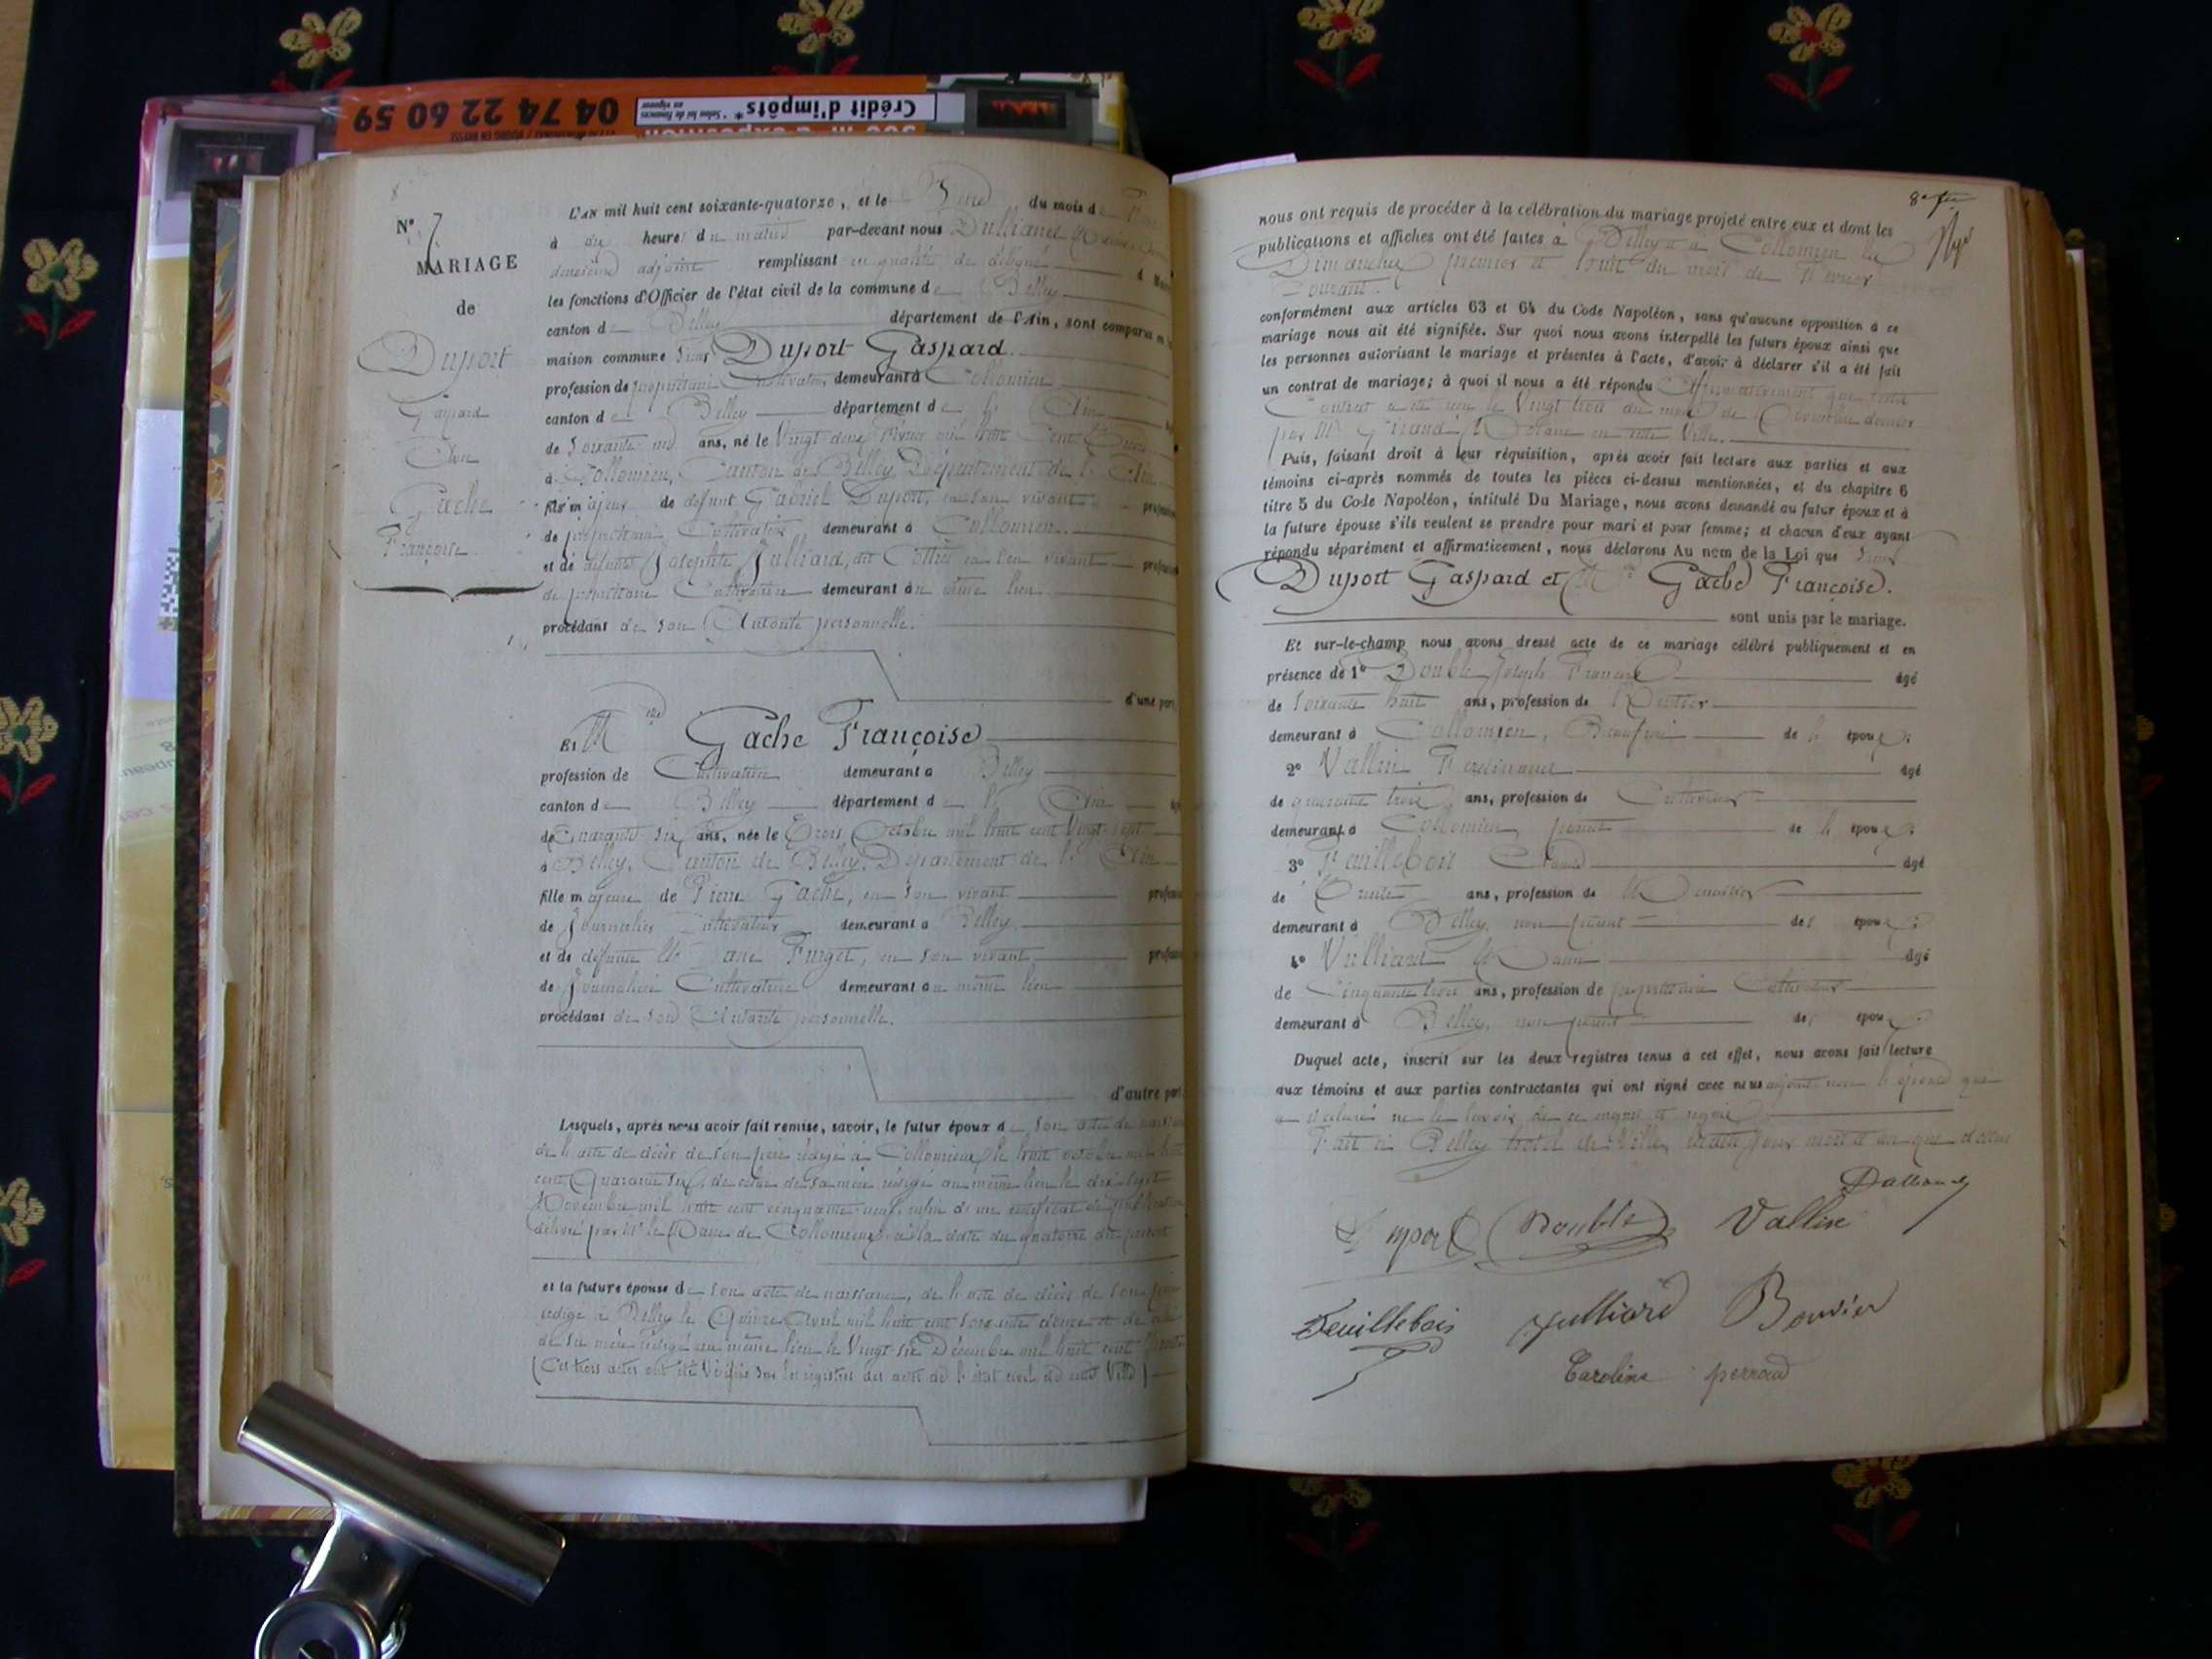 04 74 22 60 59
Crédit d'impôts*
* Selon loi de finances
en vigueur
N° 7
MARIAGE
de
Duport
Gaspard
Avec
Gache
Françoise
L'an mil huit cent soixante-quatorze, et le du mois d
à dix heures du matin par-devant nous
deuxième adjoint remplissant en qualité de délégué
les fonctions d'Officier de l'état civil de la commune de Belley
canton de Belley département de l'Ain, sont comparus en
maison commune Sieur Duport Gaspard.
profession de propriétaire Cultivateur demeurant à Collomieu
canton de Belley département de l'Ain
de Soixante ans, né le Vingt deux Février mil huit Cent Onze
à Collomieu, Canton de Belley, Département de l'Ain
fils majeur de défunt Gabriel Duport, en son vivant profession
de propriétaire Cultivateur demeurant à Collomieu.
et de défunte Josephte Julliard, dit en son vivant profession
de propriétaire Cultivatrice demeurant au même lieu
procédant de son Autorité personnelle.
d'une part
Et Mlle Gache Françoise
profession de Cultivatrice demeurant à Belley
canton de Belley département de l'Ain
de Quarante six ans, née le Trois Octobre mil huit cent Vingt sept
à Belley, Canton de Belley, Département de l'Ain
fille majeure de Pierre Gache, en son vivant profession
de Journalier Cultivateur demeurant à Belley.
et de défunte Furget, en son vivant, profession
de Journalière Cultivatrice demeurant au même lieu
procédant de son Autorité personnelle.
d'autre part
Lesquels, après nous avoir fait remise, savoir, le futur époux de son acte de naissance
de l'acte de décès de son père rédigé à Collomieu, le huit octobre mil huit
cent Quarante six, de celui de sa mère rédigé au même lieu le dix sept
Novembre mil huit cent cinquante neuf, enfin d'un certificat de publication
délivré par Mr le Maire de Collomieu à la date du quatorze du présent
et la future épouse de son acte de naissance, de l'acte de décès de son père
rédigé à Belley le Quinze Avril mil huit cent soixante douze et de celui
de sa mère rédigé au même lieu le Vingt six Décembre mil huit cent
(Ces trois actes ont été vérifiés sur les registres des actes de l'état civil de cette Ville)
nous ont requis de procéder à la célébration du mariage projeté entre eux et dont les
publications et affiches ont été faites à Belley et à Collomieu les
Dimanches premier et huit du mois de Février
Courant.
conformément aux articles 63 et 64 du Code Napoléon, sans qu'aucune opposition à ce
mariage nous ait été signifiée. Sur quoi nous avons interpellé les futurs époux ainsi que
les personnes autorisant le mariage et présentes à l'acte, d'avoir à déclarer s'il a été fait
un contrat de mariage; à quoi il nous a été répondu Affirmativement que
Contrat a été reçu le Vingt trois du mois de Novembre dernier
par Me Notaire en cette Ville.
Puis, faisant droit à leur réquisition, après avoir fait lecture aux parties et aux
témoins ci-après nommés de toutes les pièces ci-dessus mentionnées, et du chapitre 6
titre 5 du Code Napoléon, intitulé Du Mariage, nous avons demandé au futur époux et à
la future épouse s'ils veulent se prendre pour mari et pour femme; et chacun d'eux ayant
répondu séparément et affirmativement, nous déclarons Au nom de la Loi que Sieur
Duport Gaspard et Mlle Gache Françoise.
sont unis par le mariage.
Et sur-le-champ nous avons dressé acte de ce mariage célébré publiquement et en
présence de 1° Double Joseph François âgé
de Soixante huit ans, profession de Rentier
demeurant à Collomieu, de l'époux;
2° Vallin Ferdinand âgé
de quarante trois ans, profession de Cultivateur
demeurant à Collomieu, parent de l'époux;
3° Feuillebois Claude âgé
de Trente ans, profession de Menuisier
demeurant à Belley, non parent des époux;
4° Julliard âgé
de Cinquante trois ans, profession de propriétaire Cultivateur
demeurant à Belley, non parent des époux;
Duquel acte, inscrit sur les deux registres tenus à cet effet, nous avons fait lecture
aux témoins et aux parties contractantes qui ont signé avec nous adjoint non l'épouse qui
a déclaré ne le savoir de ce enquise et requise
Fait à Belley hotel de Ville, lesdits jour mois et an que dessus
Duport Double Vallin
Feuillebois Julliard Bouvier
Caroline perroud